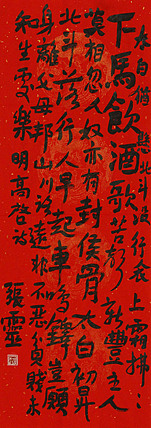 太白猶懸北斗沒行衣上霜拂:
下馬飲酒歌苦新豐主人
莫相忽人奴亦有封侯骨太白初昇
北斗落行人早起車鳴鐸豈願
身離父母邦山川遠非不惡貧賤未
知生處樂明高啓詩
張靈